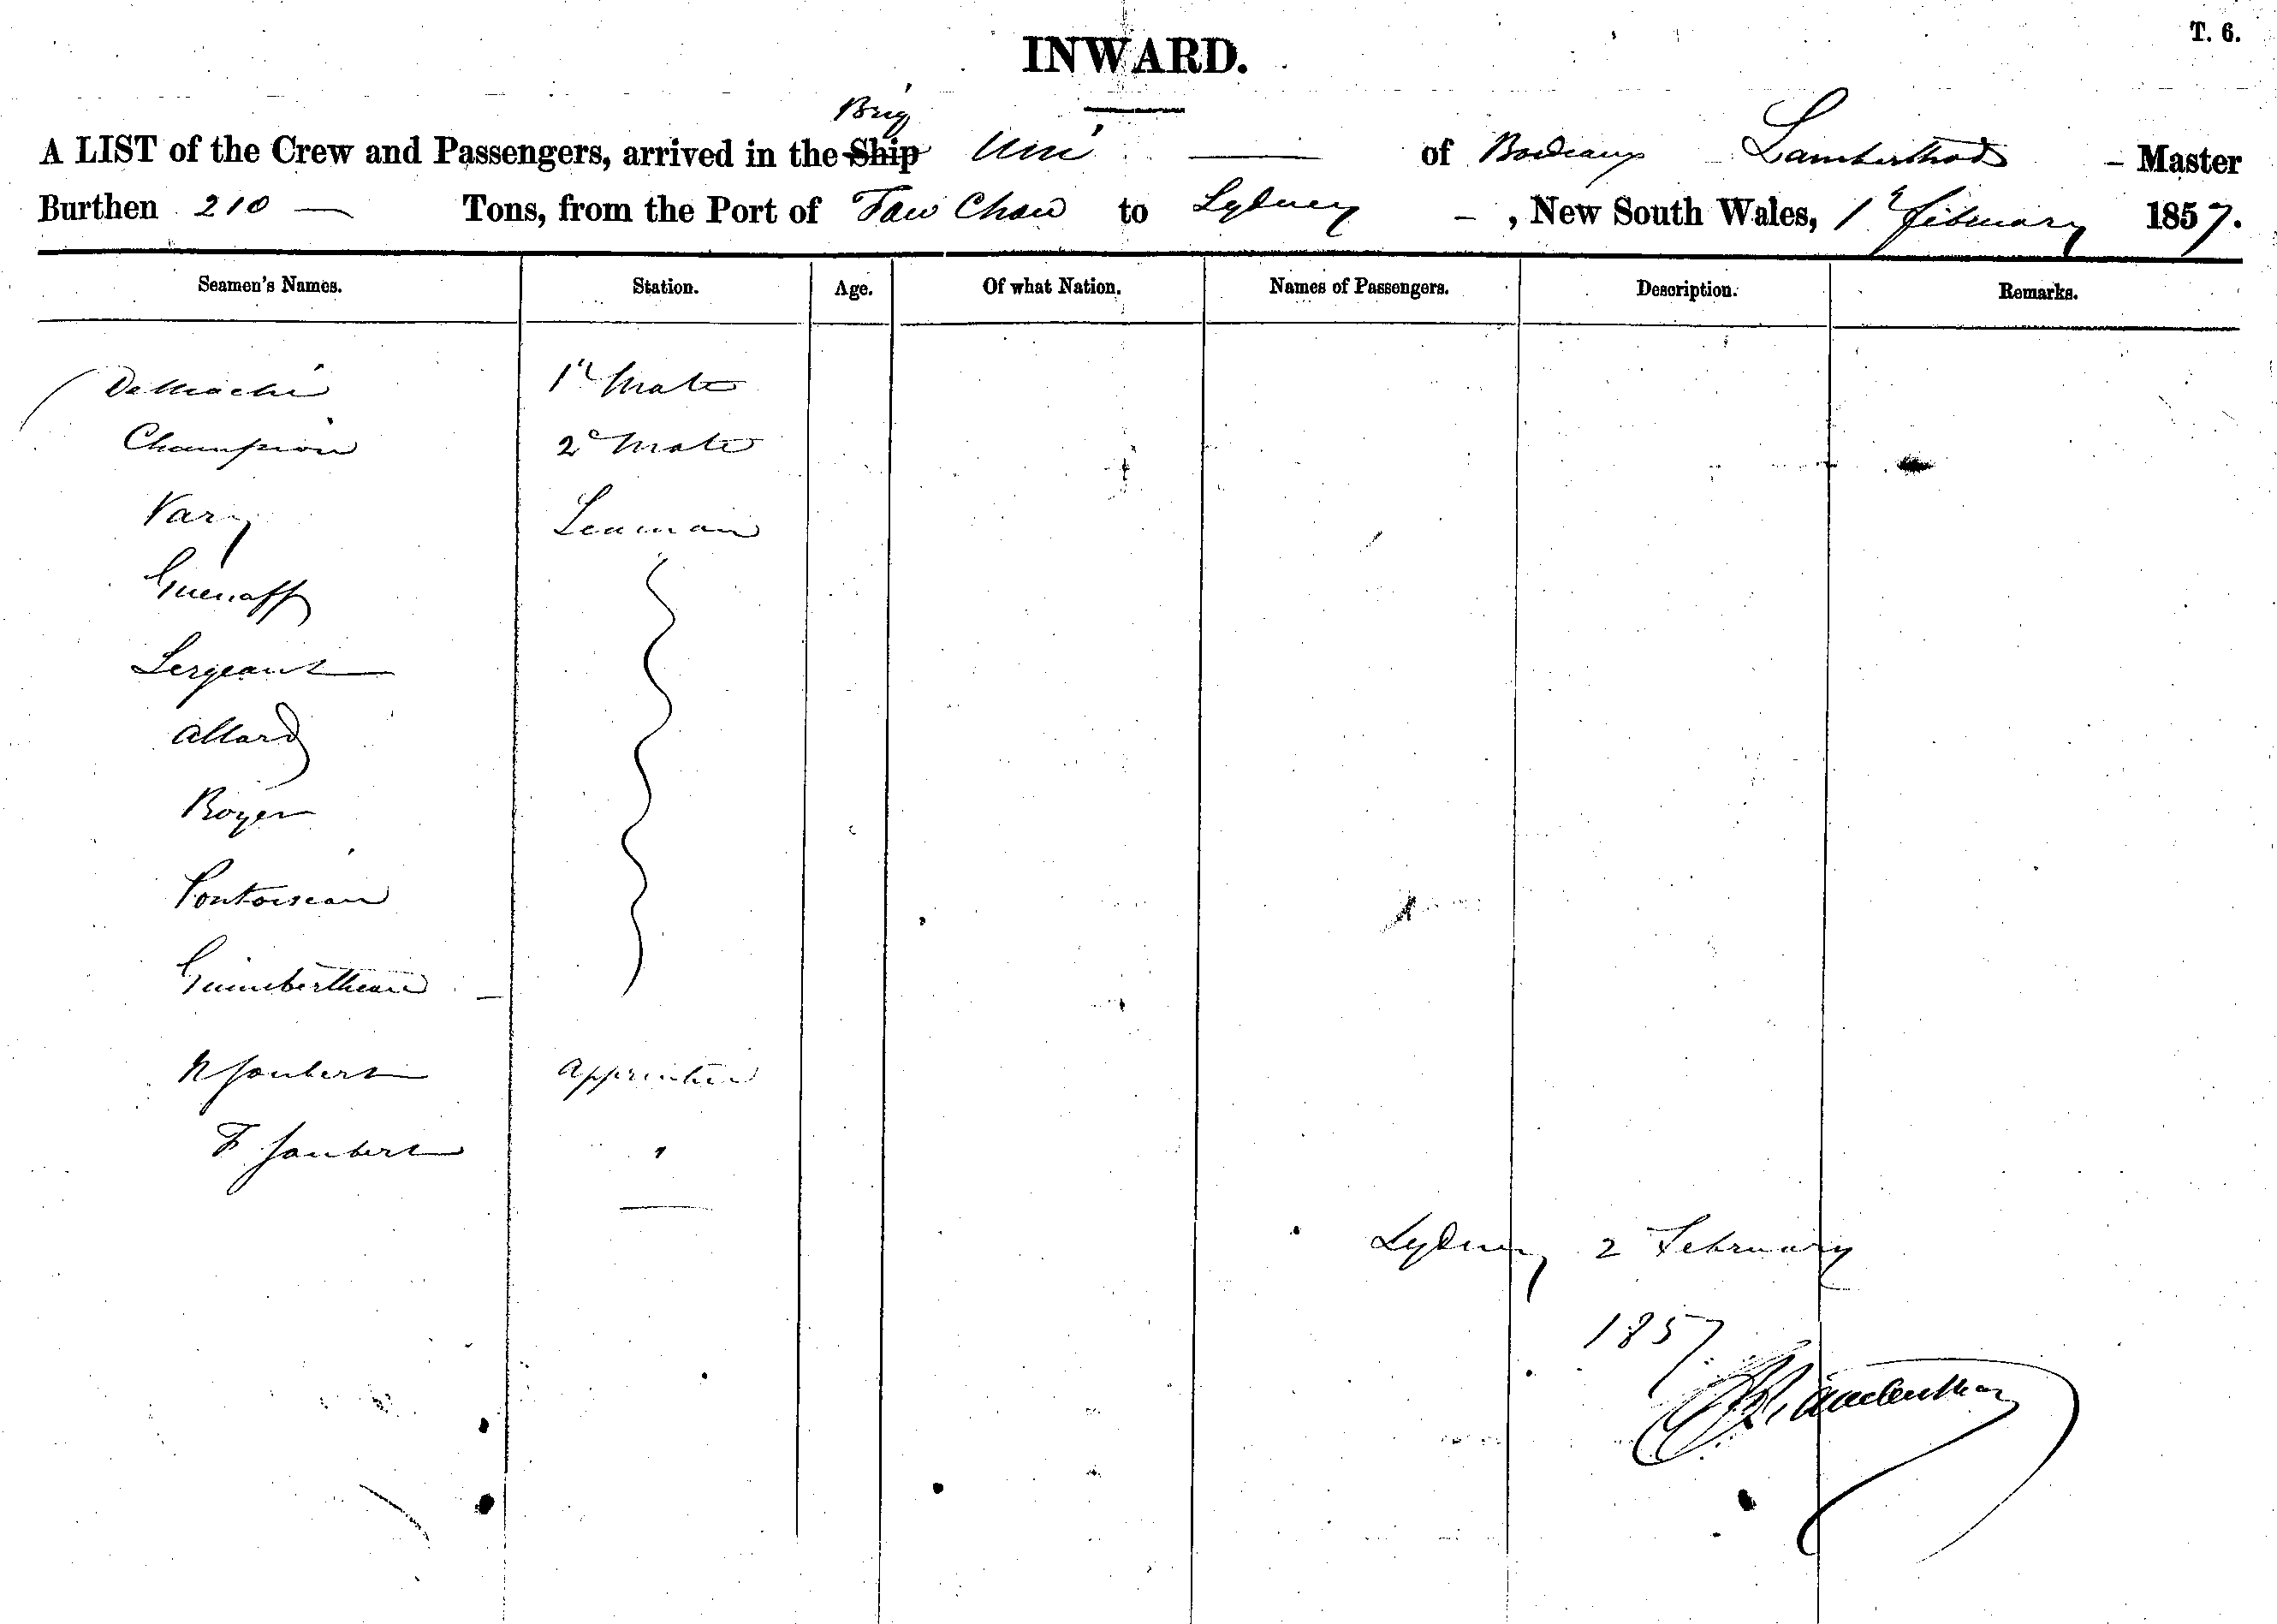 T. 6.
INWARD.
Brig
A LIST of the Crew and Passengers, arrived in the Ship Uni of Bordeaux Lamberthod Master
Burthen 210 Tons, from the Port of Foo Chow to Sydney, New South Wales, 1st February 1857.
Seamen's Names. Station. Age. Of what Nation. Names of Passengers. Description. Remarks.
1st Mate
Champion 2d Mate
Vary Seaman
Guenaff
Sergeant
Allard
Boyer
Pontoiseau
Guimbertheau
N Joubert Apprentice
F Joubert "
Sydney 2 February
1857